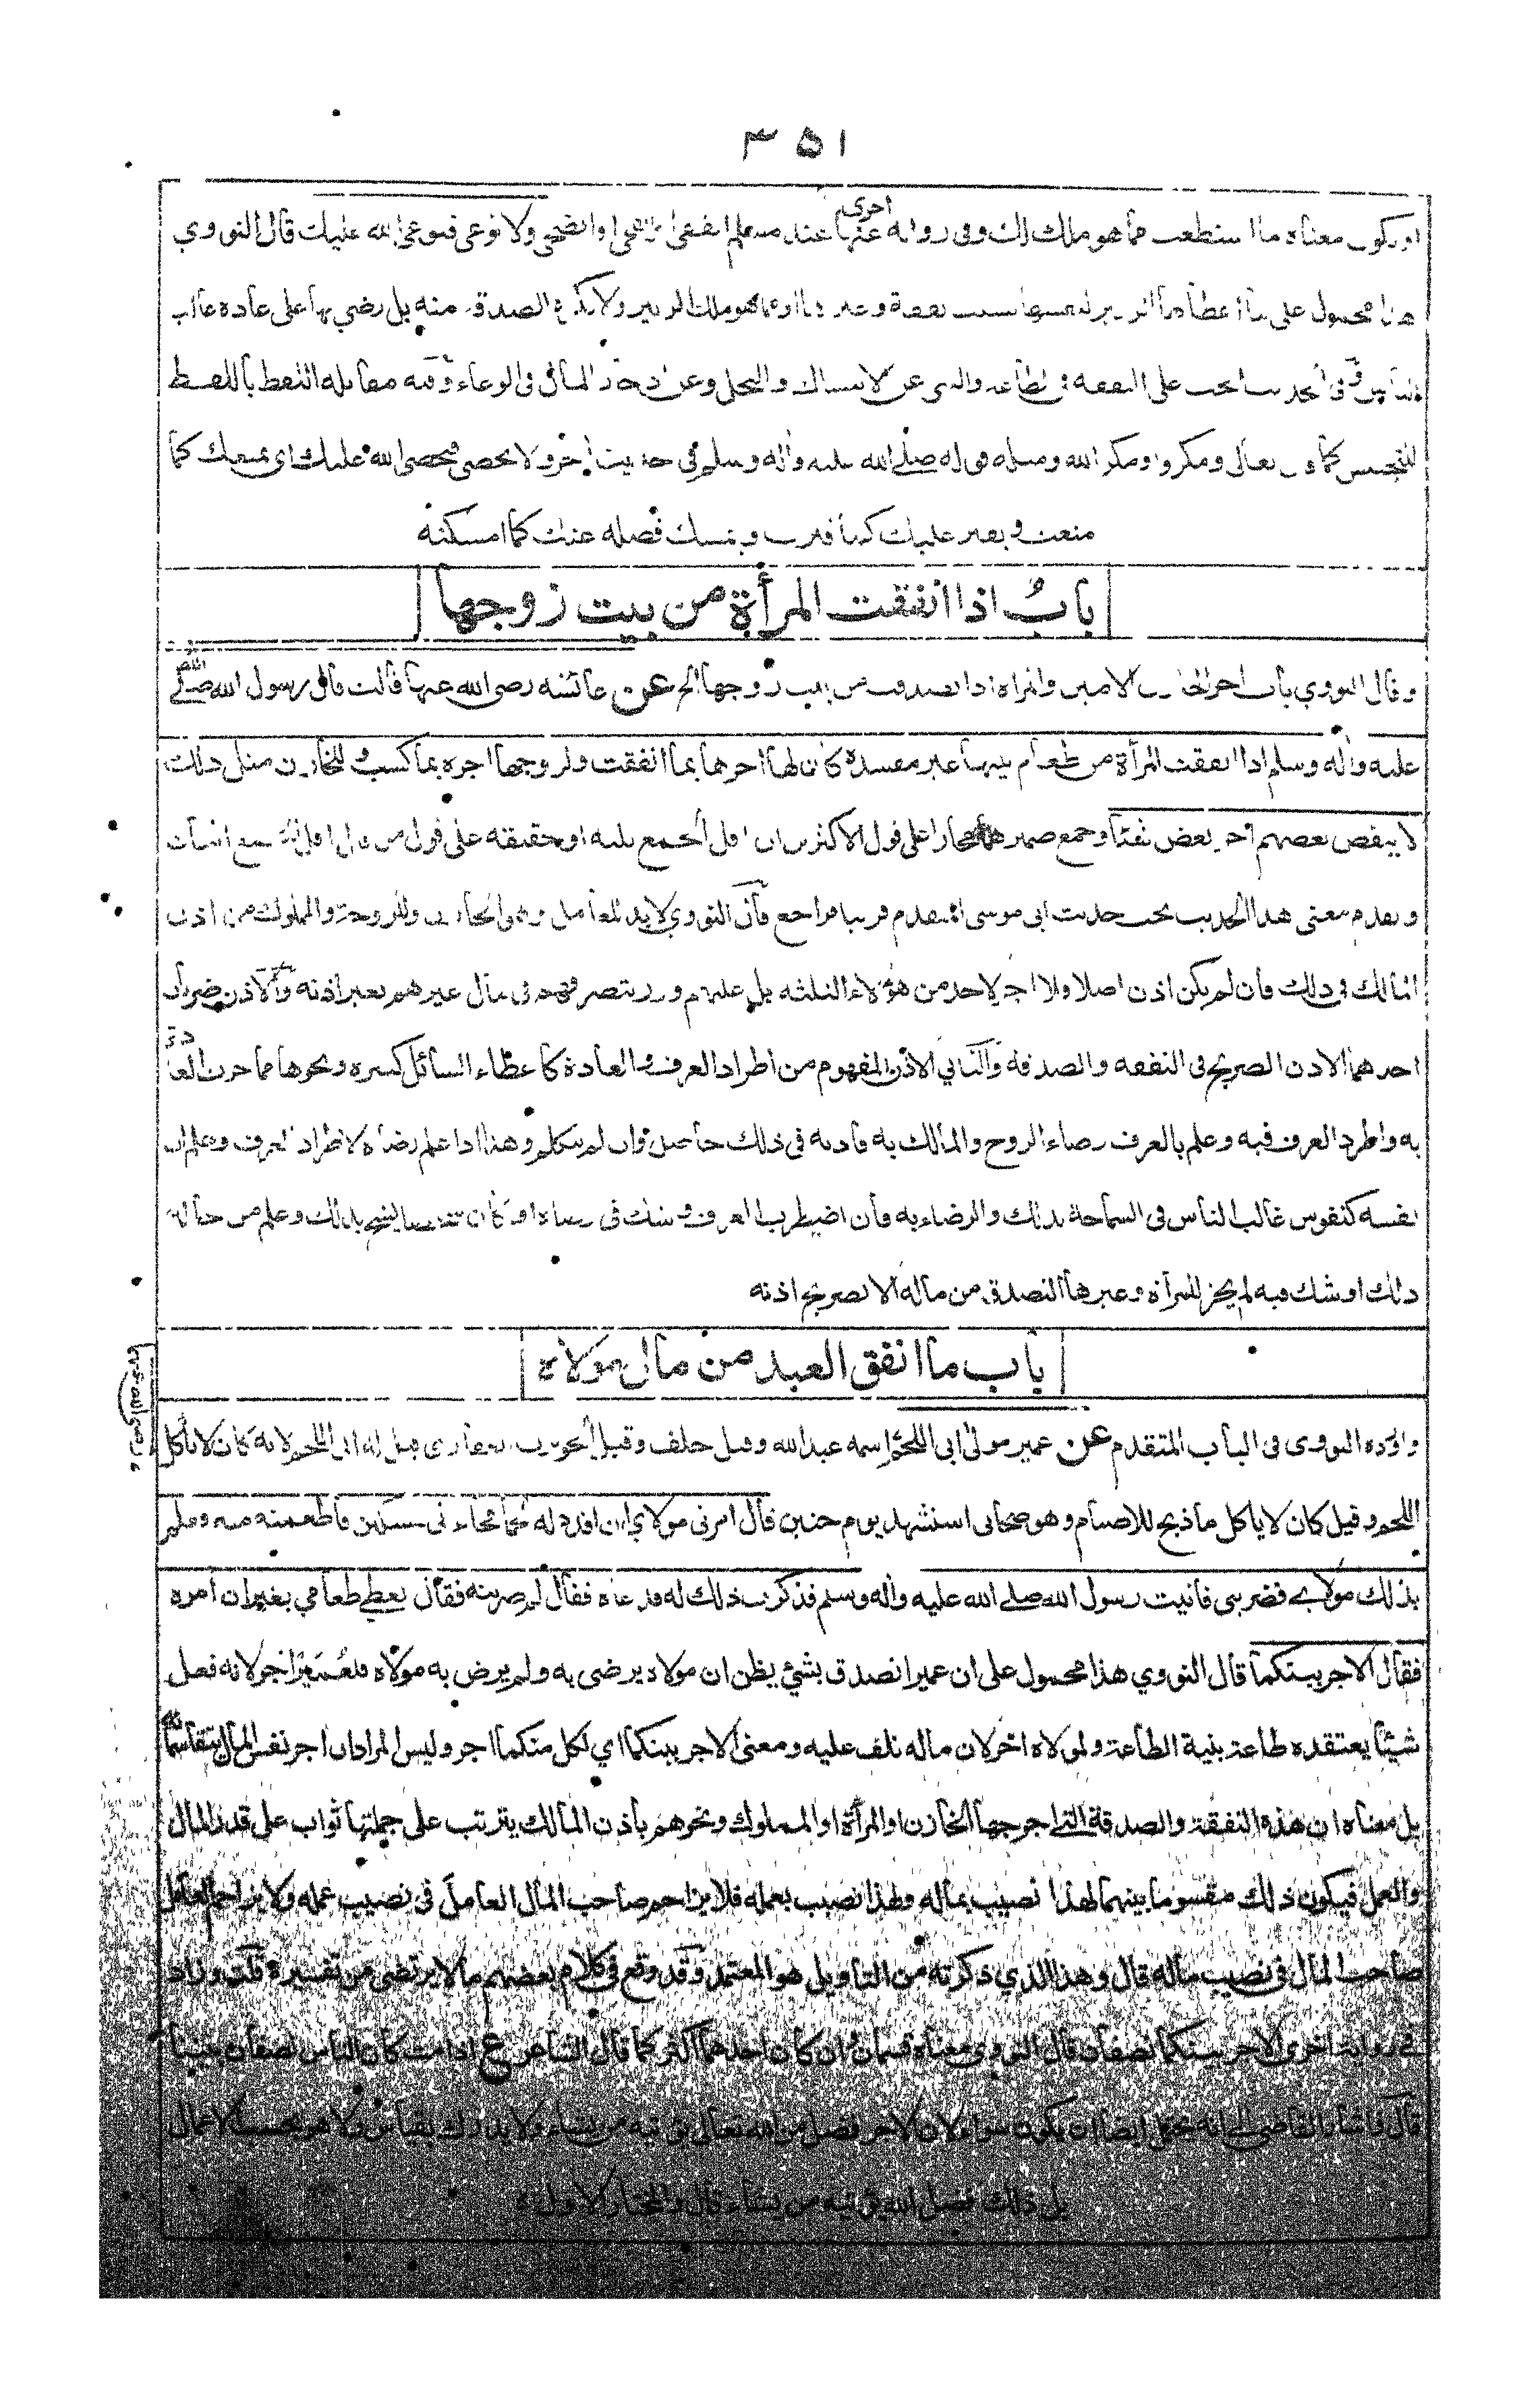 ٣٥١
او يكون معناه ما استطعت مما هو ملك لك وفى رواية اخرى عنها عند مسلم انفقى او انضحى ولا توعى فيوعى الله عليك قال النووي
هذا محمول على ما اعطاها الزبير لنفسها بسبب نفقة وغيرها او مما هو ملك الزبير ولا يكره الصدقة منه بل رضي بها على عادة غالب
الناس وفى الحديث الحث على النفقة فى الطاعة والنهى عن الامساك والبخل وعن ادخار المال فى الوعاء وفيه مقابلة اللفظ باللفظ
للتجنيس كما قال تعالى ومكروا ومكر الله ومثله قوله صلے الله عليه واله وسلم فى حديث اخر ولا تحصى فيحصى الله عليك اى يمنعك كما
منعت ويقتر عليك كما قترت ويمسك فضله عنك كما امسكته
باب اذا انفقت المرأة من بيت زوجها
وقال النووي باب اجر الخازن الامين والمراة اذا تصدقت من بيت زوجها الخ عن عائشة رضى الله عنها قالت قال رسول الله صلے الله
عليه واله وسلم اذا انفقت المرأة من طعام بيتها غير مفسدة كان لها اجرها بما انفقت ولزوجها اجره بما كسب وللخازن مثل ذلك
لا ينقص بعضهم اجر بعض شيئا وجمع ضمير مجازا على قول الاكثر ان اقل الجمع ثلثة او حقيقة على قول من قال اقل الجمع اثنان
وتقدم معنى هذا الحديث تحت حديث ابى موسى المتقدم قريبا فراجع قال النووي لابد للعامل وهو الخازن وللزوجة والمملوك من اذن
المالك فى ذلك فان لم يكن اذن اصلا فلا اجر لاحد من هؤلاء الثلثة بل عليهم وزر بتصرفهم فى مال غيرهم بغير اذنه والاذن ضربان
احدهما الاذن الصريح فى النفقة والصدقة والثاني الاذن المفهوم من اطراد العرف والعادة كاعطاء السائل كسرة ونحوها مما جرت العادة
به واطرد العرف فيه وعلم بالعرف رضاء الزوج والمالك به فاذنه فى ذلك حاصل وان لم يتكلم وهذا اذا علم رضاه لاطراد العرف وعلم ان
نفسه كنفوس غالب الناس فى السماحة بذلك والرضاء به فان اضطرب العرف وشك فى رضاه او كان شخصا يشح بذلك وعلم من حاله
ذلك او شك فيه لم يجز للمرأة وغيرها التصدق من ماله الا بصريح اذنه
باب ما انفق العبد من مال مولاه
واورده النووى فى الباب المتقدم عن عمير مولى ابى اللحم اسمه عبد الله وقيل خلف وقيل الحويرث الغفارى قيل له ابى اللحم لانه كان لا يأكل
اللحم وقيل كان لا يأكل ما ذبح للاصنام وهو صحابى استشهد يوم حنين قال امرنى مولاي ان اقدد له لحما فجاءنى مسكين فاطعمته منه فعلم
بذلك مولاي فضربنى فاتيت رسول الله صلے الله عليه واله وسلم فذكرت ذلك له فدعاه فقال لم ضربته فقال يعطى طعامي بغير ان امره
فقال الاجر بينكما قال النووي هذا محمول على ان عميرا تصدق بشئ يظن ان مولاه يرضى به ولم يرض به مولاه فلعمير اجر لانه فعل
شيئا يعتقده طاعة بنية الطاعة ولمولاه اجر لان ماله تلف عليه ومعنى الاجر بينكما اي لكل منكما اجر وليس المراد ان اجر نفس المال يتقاسمانه
بل معناه ان هذه النفقة والصدقة التى اخرجها الخازن او المرأة او المملوك ونحوهم باذن المالك يترتب على جملتها ثواب على قدر المال
والعمل فيكون ذلك مقسوما بينهما لهذا نصيب بماله ولهذا نصيب بعمله فلا يزاحم صاحب المال العامل فى نصيب عمله ولا يزاحم العامل
صاحب المال فى نصيب ماله قال وهذا الذي ذكرته من التأويل هو المعتمد وقد وقع فى كلام بعضهم ما لا يرتضى من تفسيره قلت وزاد
فى رواية اخرى الاجر بينكما نصفان قال النووى معناه قسمان وان كان احدهما اكثر كما قال الشاعر ع اذا مت كان الناس نصفان بيننا
قال واشار القاضى الى انه يحتمل ايضا ان يكون سواء لان الاجر فضل من الله تعالى يؤتيه من يشاء ولا يدرك بقياس ولا هو بحسب الاعمال
بل ذلك فضل الله يؤتيه من يشاء قال والمختار الاول